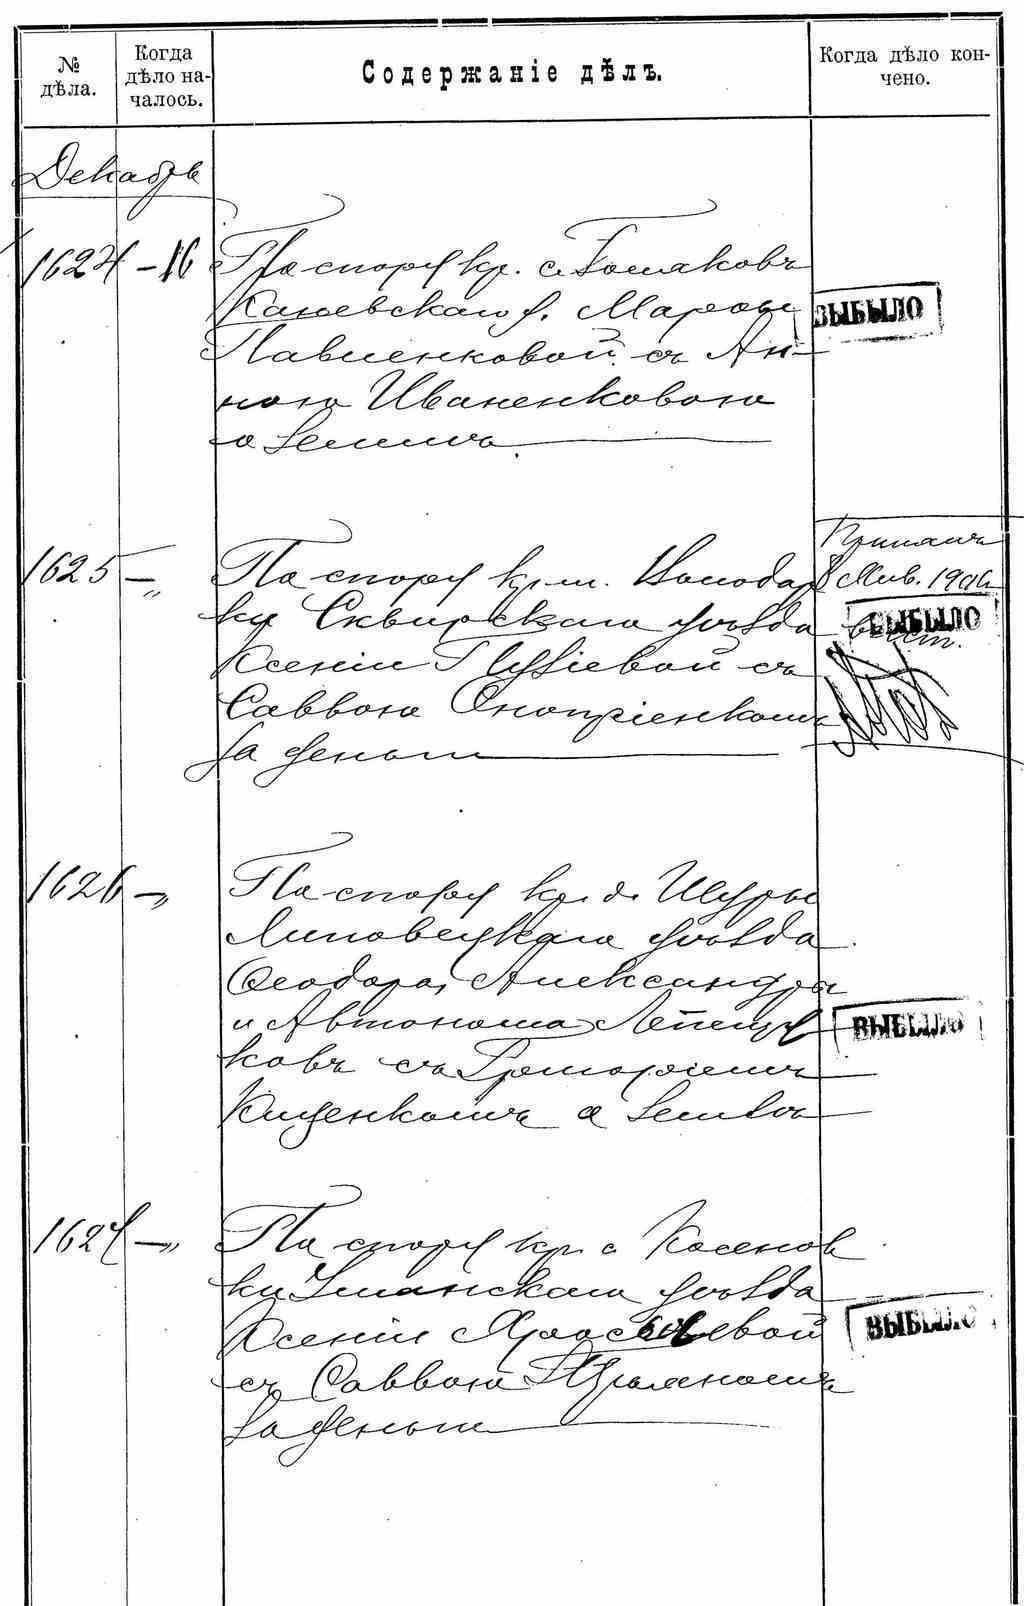 № дѣла.
Когда дѣло на-
чалось.
Содержаніе дѣлъ.
Когда дѣло кон-
чено.
Декабрь
1624 - 16 По спору кр. с. Гошаковъ
Каневскаго у. Марѳы
Павленковой съ Ан-
ною Иваненковою
о земли.
ВЫБЫЛО
1625 - „ По спору кр. м. Володар
ки Сквирскаго уѣзда
Ксеніи съ
Саввою Онопріенкомъ
за деньги
Янв. 190
ВЫБЫЛО
1626 - „ По спору кр. д. Шуры
Липовецкаго уѣзда
Ѳеодора, Александры
и Автонома
ковъ съ Григоріемъ
Кищенкомъ о землѣ
ВЫБЫЛО
1627 - „ По спору кр. с. Косенов
ки Уманскаго уѣзда
Ксеніи
съ Саввою
за деньги
ВЫБЫЛО